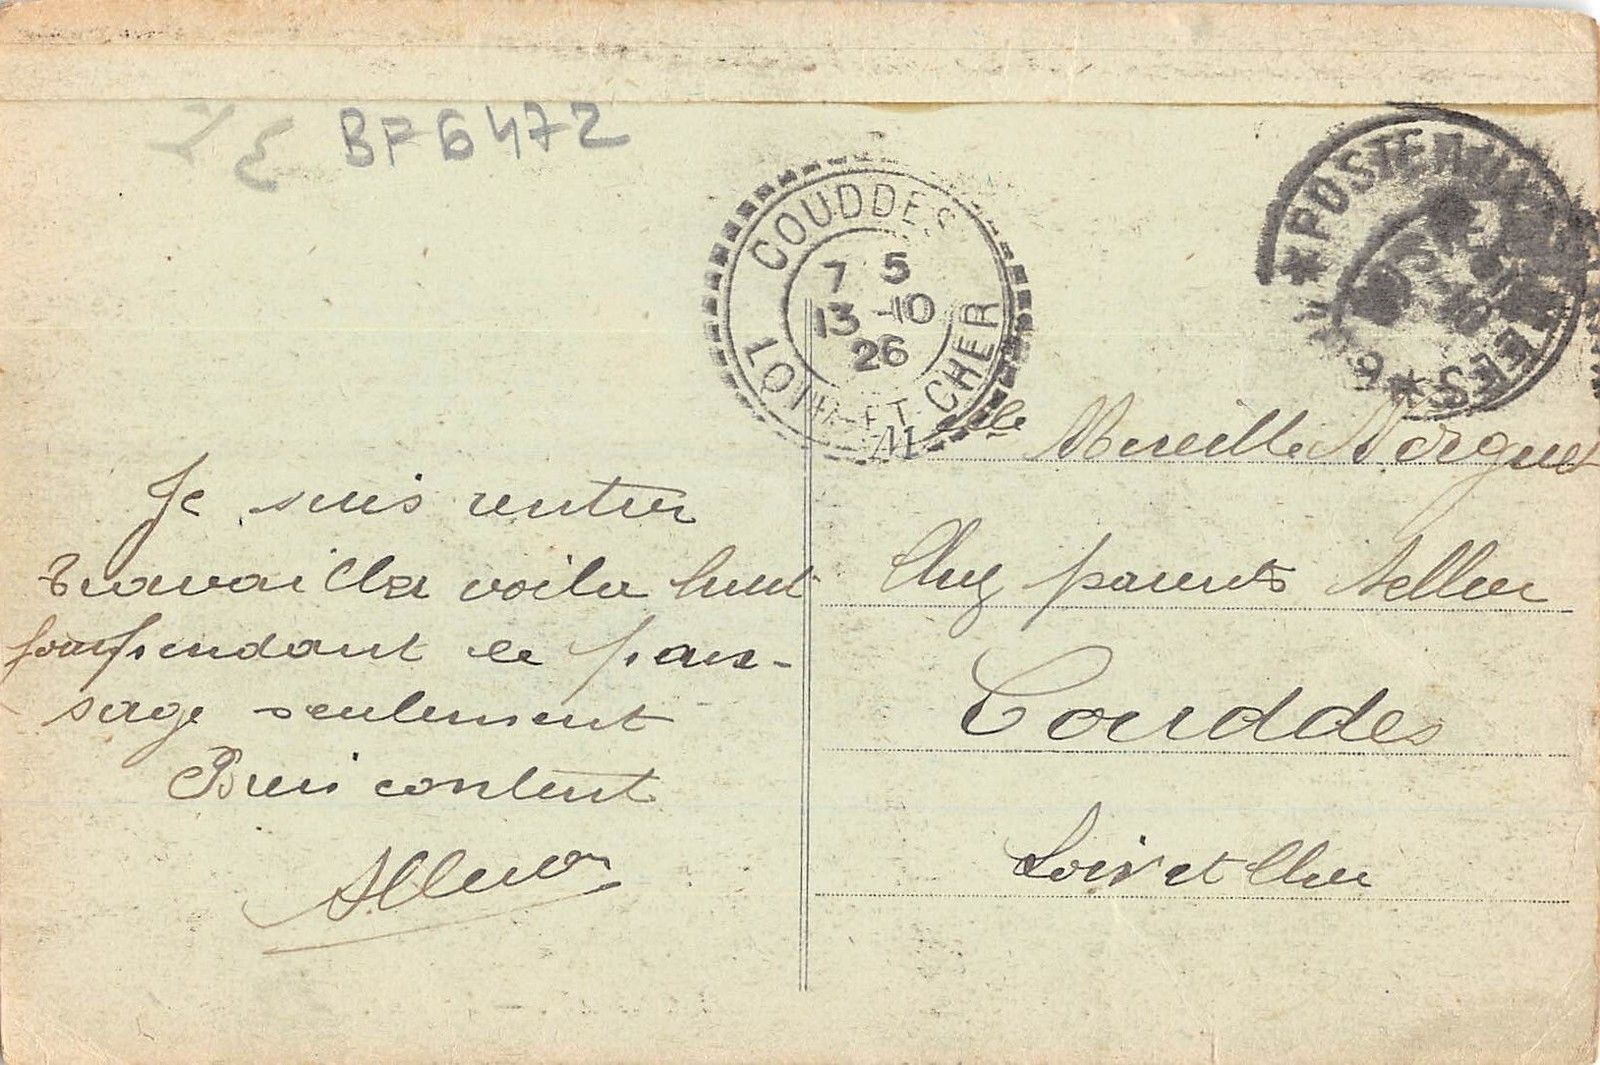 BF6472
COUDDES
7 5
13 -10
26
LOIR-ET-CHER
POSTE
Je suis rentrer
travailler voila huit
jours pendant le pan-
sage seulement
Bien content
Mlle Mireille Norguet
Chez parents Sellier
Couddes
Loir et Cher